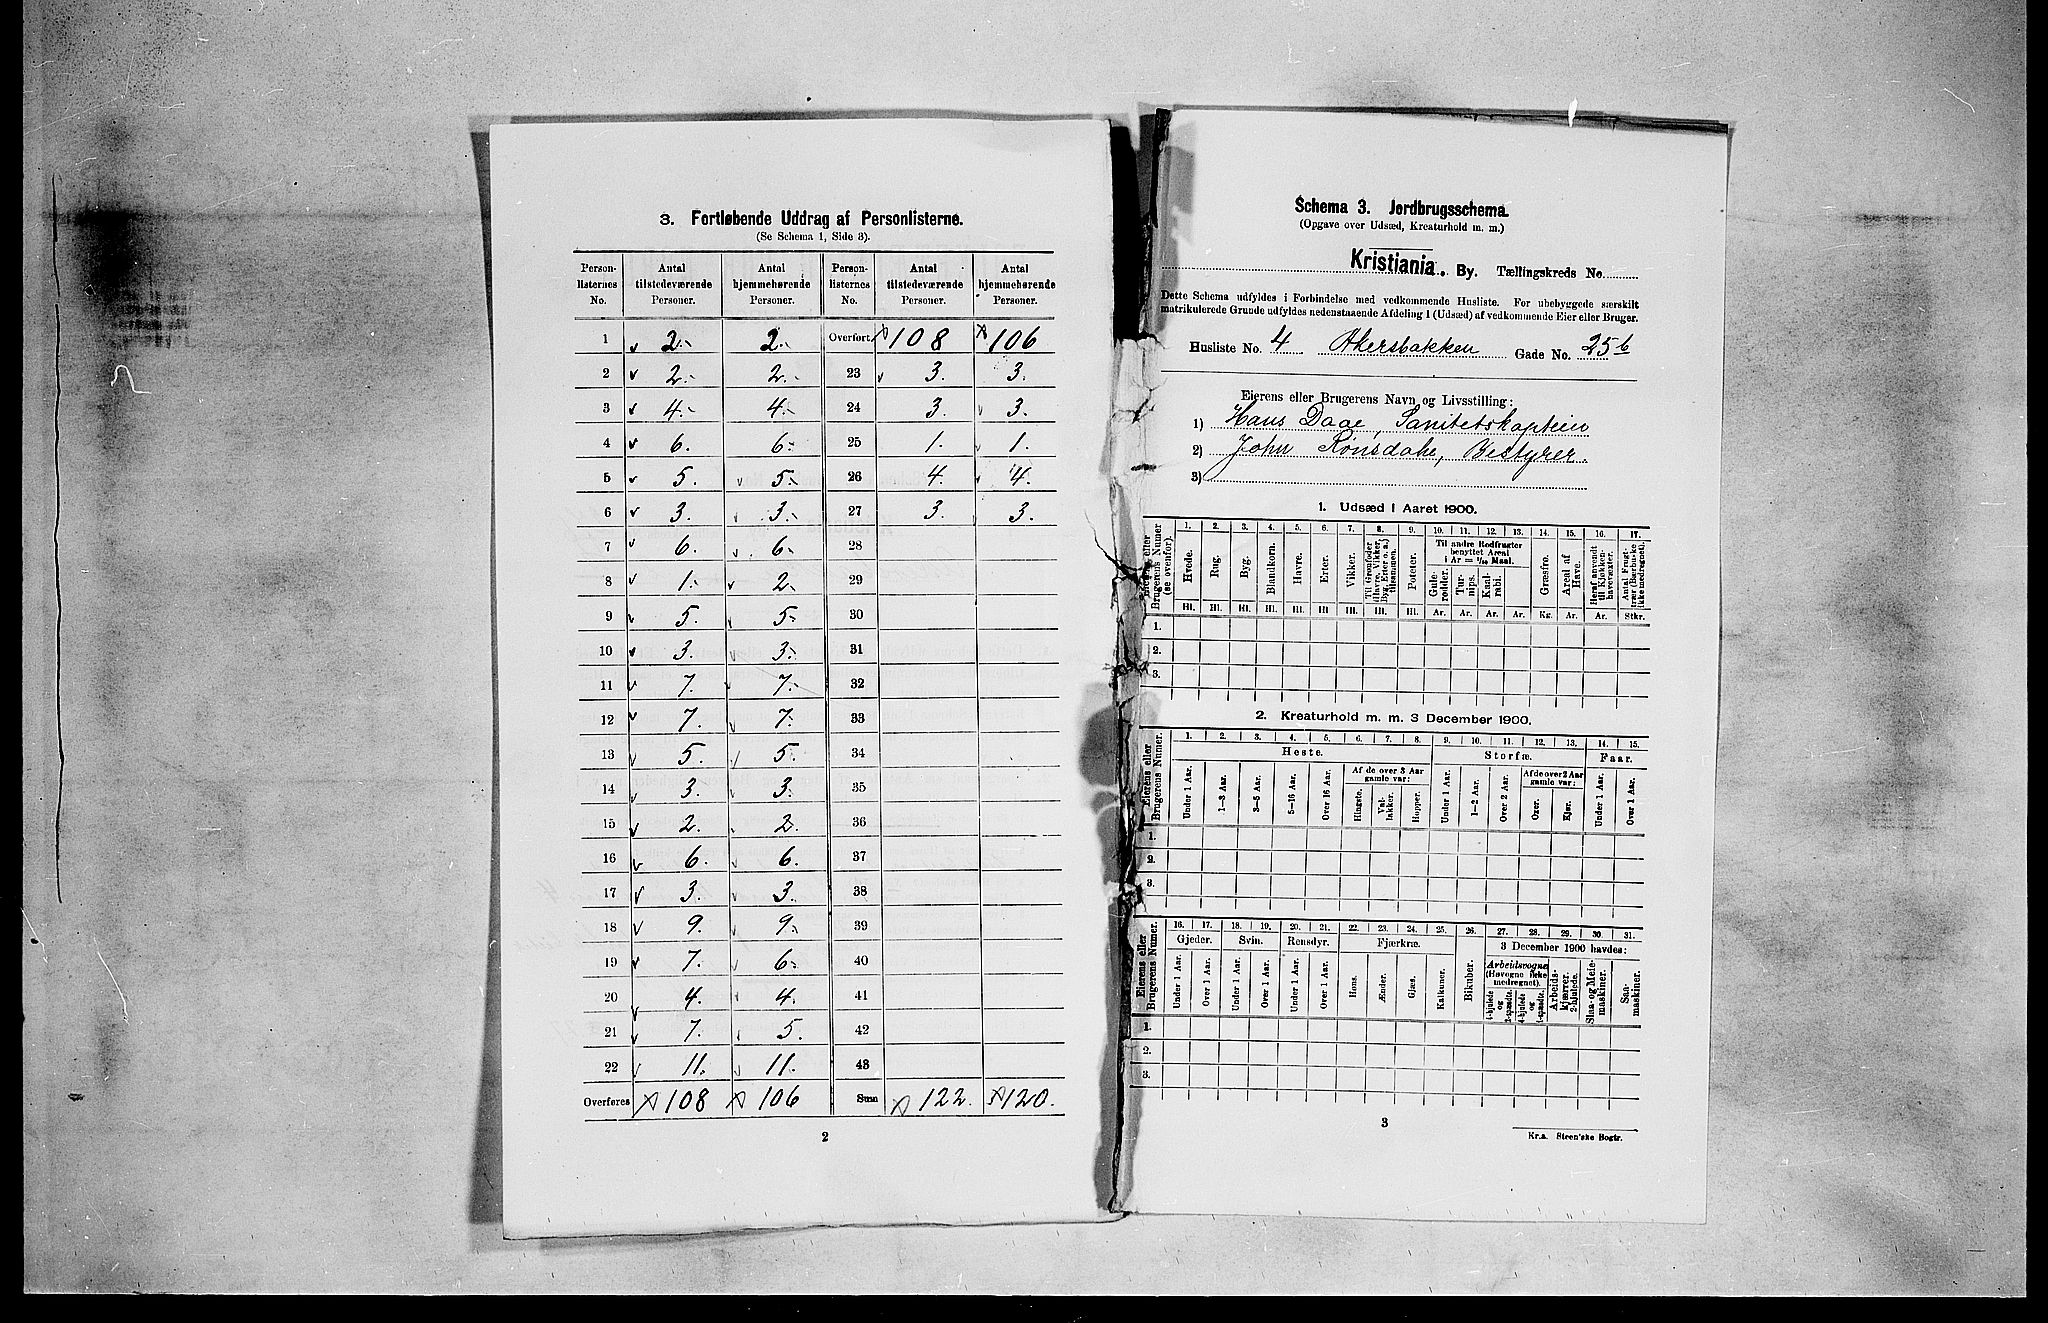 3. Fortløbende Uddrag af Personlisterne.
(Se Schema 1, Side 3).
Person-listernes No. | Antal tilstedeværende Personer. | Antal hjemmehørende Personer. | Person-listernes No. | Antal tilstedeværende Personer. | Antal hjemmehørende Personer.
1 | 2. | 2. | Overført | 108 | 106
2 | 2. | 2. | 23 | 3. | 3.
3 | 4. | 4. | 24 | 3. | 3.
4 | 6. | 6. | 25 | 1. | 1.
5 | 5. | 5. | 26 | 4. | 4.
6 | 3. | 3. | 27 | 3. | 3.
7 | 6. | 6. | 28
8 | 1. | 2. | 29
9 | 5. | 5. | 30
10 | 3. | 3. | 31
11 | 7. | 7. | 32
12 | 7. | 7. | 33
13 | 5. | 5. | 34
14 | 3. | 3. | 35
15 | 2. | 2. | 36
16 | 6. | 6. | 37
17 | 3. | 3. | 38
18 | 9. | 9. | 39
19 | 7. | 6. | 40
20 | 4. | 4. | 41
21 | 7. | 5. | 42
22 | 11. | 11. | 43
Overføres | 108 | 106 | Sum | 122. | 120.
2
Schema 3. Jordbrugsschema.
(Opgave over Udsæd, Kreaturhold m. m.)
Kristiania. By. Tællingskreds No
Dette Schema udfyldes i Forbindelse med vedkommende Husliste. For ubebyggede særskilt
matrikulerede Grunde udfyldes nedenstaaende Afdeling 1 (Udsæd) af vedkommende Eier eller Bruger.
Husliste No. 4 Akersbakken Gade No. 25b
Eierens eller Brugerens Navn og Livsstilling:
1) Hans Daae, Sanitetskaptein
2) John Rønsdahe, Bestyrer.
3)
1. Udsæd i Aaret 1900.
Eierens eller Brugerens Numer (se ovenfor).
1. 2. 3. 4. 5. 6. 7. 8. 9. 10. 11. 12. 13. 14. 15. 16. 17.
Hvede. Rug. Byg. Blandkorn. Havre. Erter. Vikker. Til Grønfoder tilsaaede Poteter.
Til andre Rodfrugter benyttet Areal
1 Ar = 1/10 Maal.
Gule-rødder. Tur-nips. Kaal-rabi. Græsfrø. Areal af Have. Heraf anvendt til Kjøkken-havevæxter. Antal Frugt-trær (Barbuske ikke medregnet).
Hl. Hl. Hl. Hl. Hl. Hl. Hl. Hl. Hl. Ar. Ar. Ar. Ar. Kg. Ar. Ar. Stkr.
1.
2.
3.
2. Kreaturhold m. m. 3 December 1900.
Eierens eller Brugerens Numer.
1. 2. 3. 4. 5. 6. 7. 8. 9. 10. 11. 12. 13. 14. 15.
Heste. Storfæ. Faar.
Af de over 3 Aar gamle var: Af de over 2 Aar gamle var:
Under 1 Aar. 1—3 Aar. 3—5 Aar. 5—16 Aar. Over 16 Aar. Hingste. Val-lakker. Hopper. Under 1 Aar. 1—2 Aar. Over 2 Aar. Oxer. Kjør. Under 1 Aar. Over 1 Aar.
1.
2.
3.
Eierens eller Brugerens Numer.
16. 17. 18. 19. 20. 21. 22. 23. 24. 25. 26. 27. 28. 29. 30. 31.
Gjeder. Svin. Rensdyr. Fjærkræ. 3 December 1900 havdes:
Arbeidsvogne (Høvogne ikke medregnet).
Under 1 Aar. Over 1 Aar. Under 1 Aar. Over 1 Aar. Under 1 Aar. Over 1 Aar. Høns. Ænder. Gjæs. Kalkuner. Bikuber. 4-hjulede og 2-spændte. 4-hjulede og 1-spændte. Arbeids-kjærrer, 2-hjulede. Slaa- og Meie-maskiner. Saa-maskiner.
1.
2.
3.
3
Kr.a. Steen'ske Bogtr.